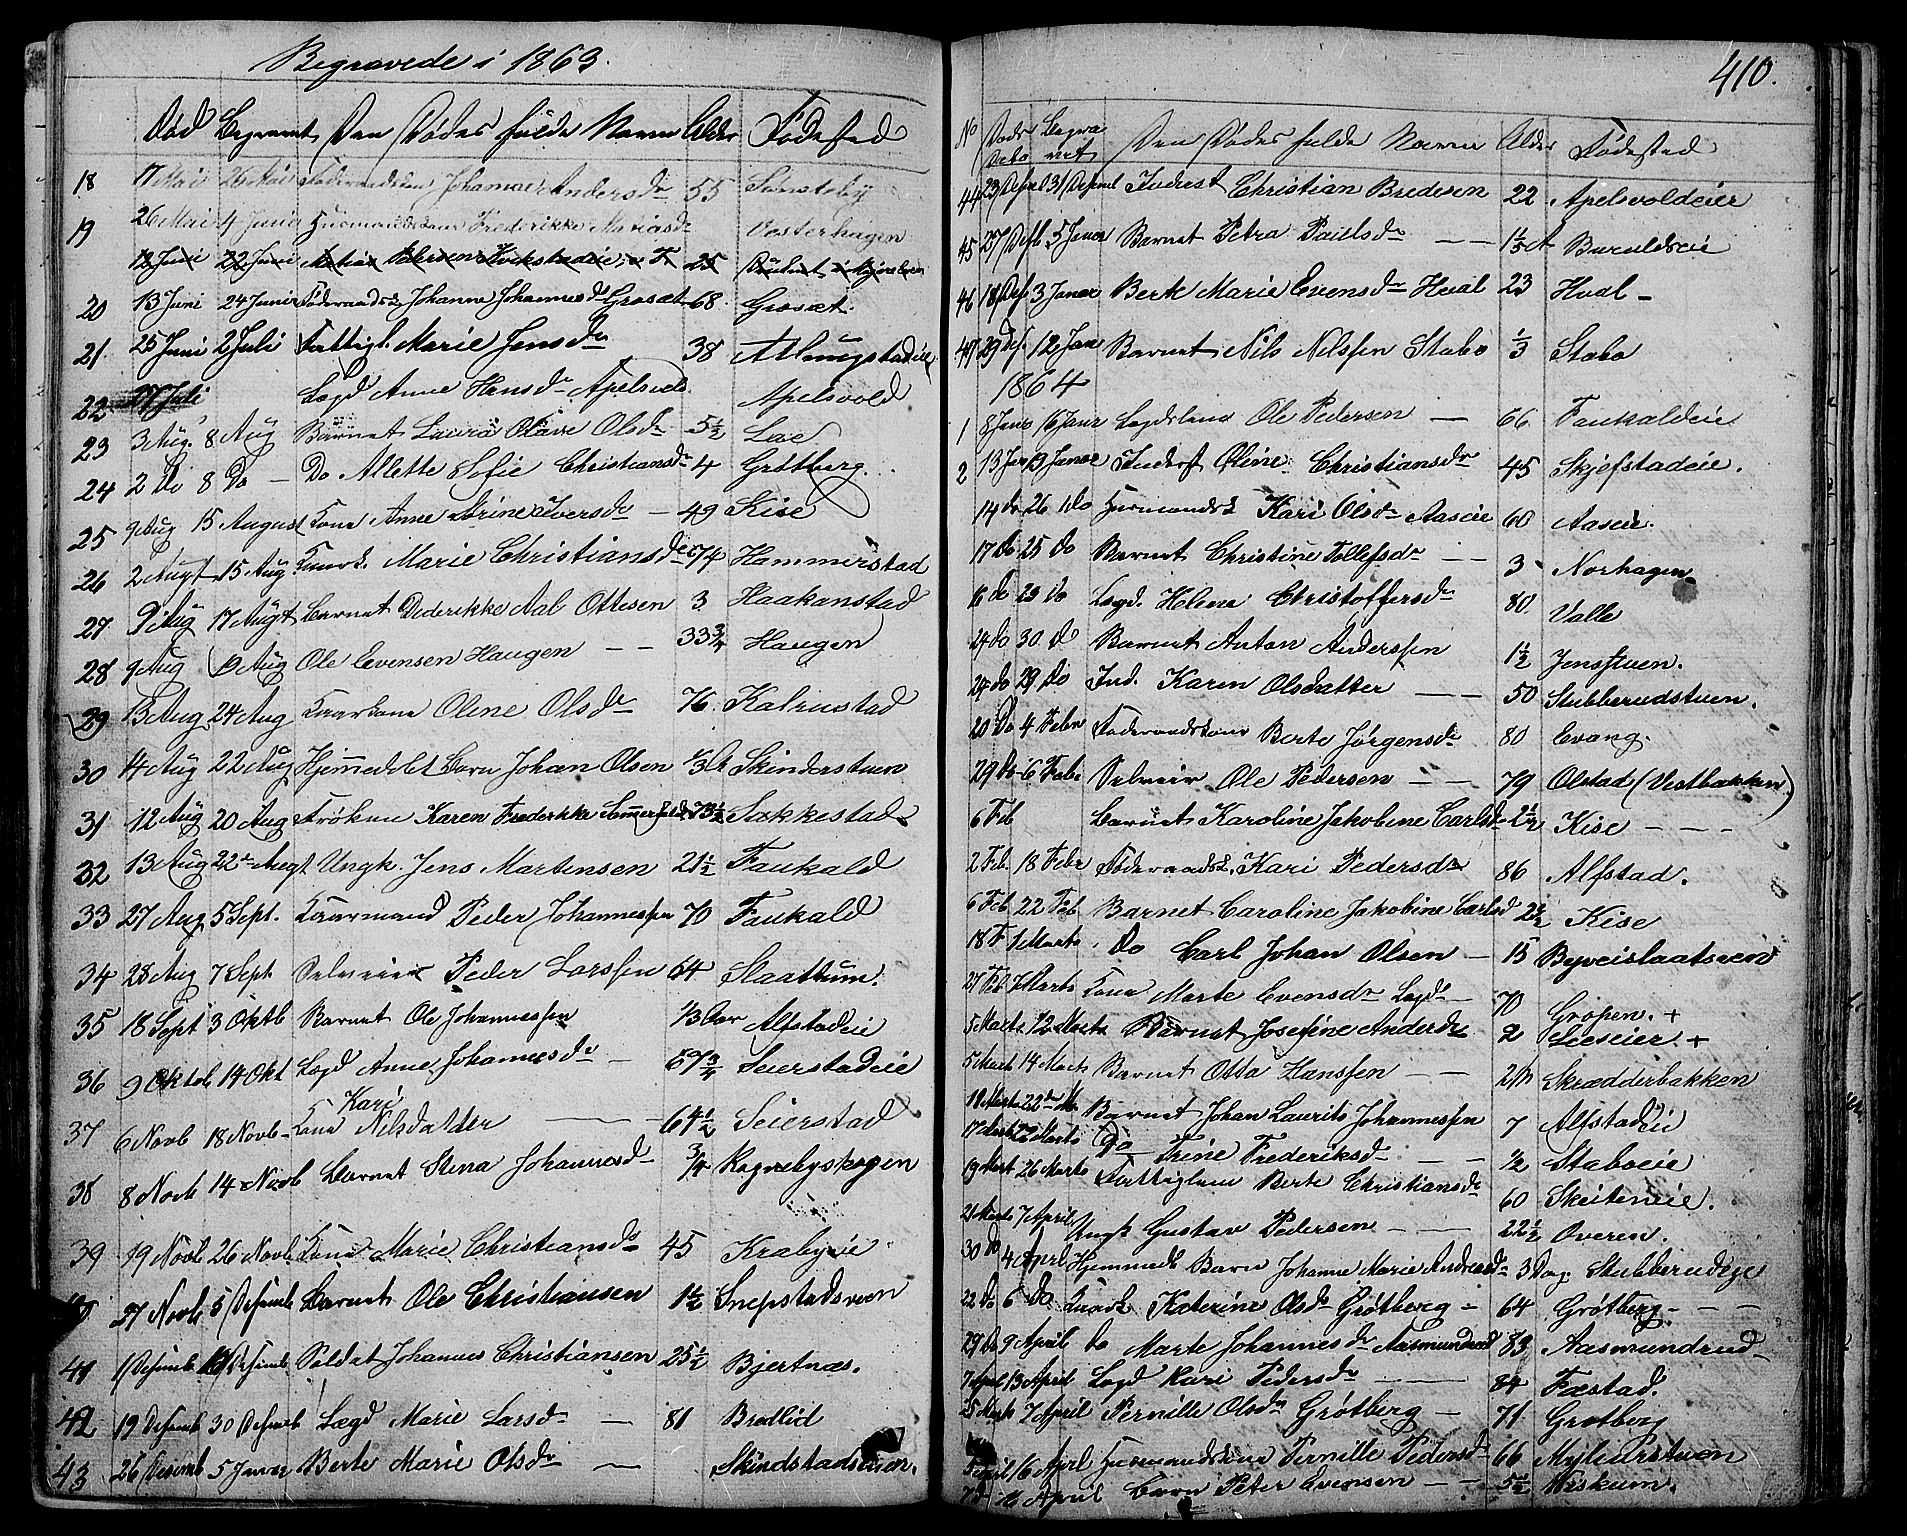 Begravede i 1863.
Död Begravet Den Dödes fulde Navn Alder Födested
18 17 Mai 26 Mai Föderaadsm Andersdr 55 Sonstoby
19 26 Mai 4 Juni Husmandskone Frederikke Matiasdr Vosterhagen
12 Juni 22 Juni 25
20 13 Juni 24 Juni Föderaadsk Johanne Johannesdr Grosæt 68. Grosæt.
21. 25 Juni 2 Juli Fattigl. Marie Jensdr 38
22 27 Juli Lægd Anne Hansdr Apelsvold Apelsvold
23 3 Aug. 8 Aug Barnet Laura Olave Olsdr 5½ Loe
24 2 Do 8 Do - Do Allette Sofie Christiansdr 4 Grötberg.
25 9 Aug 15 August Kone Anne Iversdr - 49 Kise
26 2 Augt 15 Aug Marie Christiansdr 74 Hammerstad
27 9 Aug 17 Augt Barnet Dederikke Aal Ottesen 3 Haakonstad
28 9 Aug 19 Aug Ole Evensen Haugen - - 33 ¾ Haugen
29 13 Aug 24 Aug Kaarkone Olene Olsdr 76. Kalrustad
30 14 Aug 22 Aug Hjemmedøbt Barn Johan Olsen Skinderstuen
31 12 Aug 20 Aug Frøken Karen Frederikke 73½ Sækkestad
32 13 Aug 22 Augt Ungk. Jens Martensen 21½ Faukald
33 27 Aug 5 Sept. Kaarmand Peder Johannesen 70 Faukald
34 28 Aug 7 Sept Selveier Peder Larssen 64 Slaattum.
35 18 Sept 3 Oktb Barnet Ole Johannessen 1/3 Aar Alfstadeie
36 9 Oktob 14 Okt Lægd Anne Johannesdr - 59¾ Seierstadeie
37 6 Novb 18 Novb - Kone Kari Nilsdatter 64½ Seierstad
38 8 Novb 14 Novb Barnet Stena Johannesdr ¾ Rognebyskogen
39 19 Novb 26 Novb Kone Marie Christiansdr 45 Krabyeie
40 27 Novb 5 Desemb Barnet Ole Christiansen 1½ Snepstadsveen
41 1 Desemb Desemb Soldat Johannes Christiansen 25½ Bjertnæs.
42 19 Desemb 30 Desemb Lægd Marie Larsdr - 81 Bredlid
43 26 Desemb 5 Januar Berte Marie Olsdr - Skindstadstuen.
410.
No Döds Dato Begravet Den Dödes fulde Navn Alder Födested
44 23 Desmb 31 Desmb Inderst Christian Bredesen 22 Apelsvoldeier
45 27 Desb 5 Janor Barnet Petra Paulsdr - - Buruldseie
46 18 Des 3 Janor Berte Marie Evensdr Hval 23 Hval -
47 29 Des 12 Jan Barnet Nils Nilssen Stabo 1/3 Stabo
1864
1 8 Janr 16 Janr Lægdslem Ole Pedersen - 66 Faukaldeie
2 13 Jan 19 Janor Inderst Oline Christiansdr 45 Skjefstadeie.
14 do 26 Do Husmandsk Kari Olsdr Aaseie 60 Aaseie.
17 Do 25 Do Barnet Christine Tollefsdr - - 3 Norhagen
16 Do 29 Do Lægd. Helene Christoffersdr 80 Valle
24 Do 30. Do Barnet Anton Anderssen 1½ Jensstuen.
24 do 29 Do Ind. Karen Olsdatter - - 50 Stubberudstuen.
20 Do 4 Febr Föderaadskone Berte Jørgensdr 80 Evang.
29 Do 6 Febr Selveier Ole Pedersen - - 79 Olstad (Vestbakken)
6 Feb Barnet Karoline Jakobine Carlsdr 2½ Kise - - -
2 Feb. 18 Febr Föderaadsk. Kari Pedersdr 86 Alfstad.
6 Feb 22 Feb Barnet Caroline Jakobine Carlsd 2½ Kise
18 F 1 Marts Do Carl Johan Olsen - 15
27 Feb 7 Marts Kone Marte Evensdr Lægd - 70 Gropen. +
5 Marts 12 Marts Barnet Josefine Andersdr 2 Lieseier +
5 Marts 14 Marts Barnet Otto Hanssen - - Skrædderbakken
18 Marts 22 Ma. Barnet Johan Laurits Johannessen 7 Alfstadeie
17 Marts 22 Marts Do Trine Frederiksd - - ½ Staboeie
19 Mart 26 Marts Fattiglem Berte Christiansdr 60 Skeiteneie.
21 Marts 7 April Ungk Gustav Pedersen - - 22½ Overen.
30 do 4 April Hjemmedbt Barn Johanne Marie Andreasdr 3 Dag. Stubberudeie
22 Do 6 Do Kaark Katerine Olsdr Grøtberg - 64 Grøtberg - - -
29 Do 9 April do Marte Johannesdr Aasmundrud 83 Aasmundrud
7 April 13 April Lægd Kari Pedersdr - - - 84 Fæstad.
25 Marts 7 April Pernille Olsdr Grøtberg - 71 Grøtberg
April 16 April Husmandskone Pernille Pedersdr 66
16 April Barn Peter Evensen - 5½ Niskum.